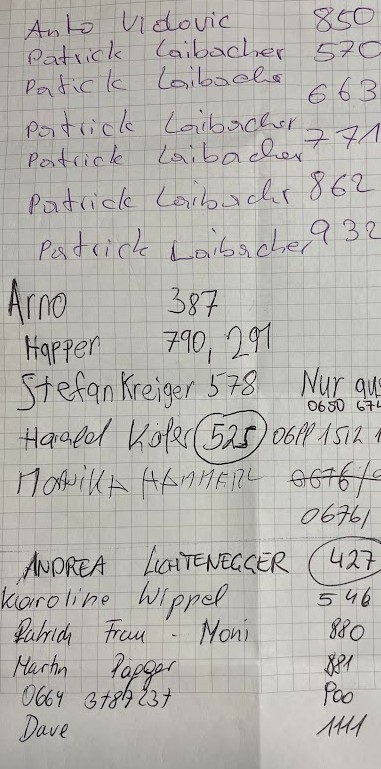 Anto Vidovic 850
Patrick Laibacher 570
Patick Laibachr
663
Patrick Laibacher
Patrick Laibacher 771
Patrick Laibachr 862
Patrick Laibacher 932
Arno 387
Happer 790, 291
Stefan Kreiger 578 Nur aus
0650 674
Harald Kofer 525 1512 1
MONIKA 0676/
0676/
ANDREA LICHTENEGGER 427
Karoline Wippel 546
Patrick Frau - Moni 880
Martin 881
0664
Dave 1111